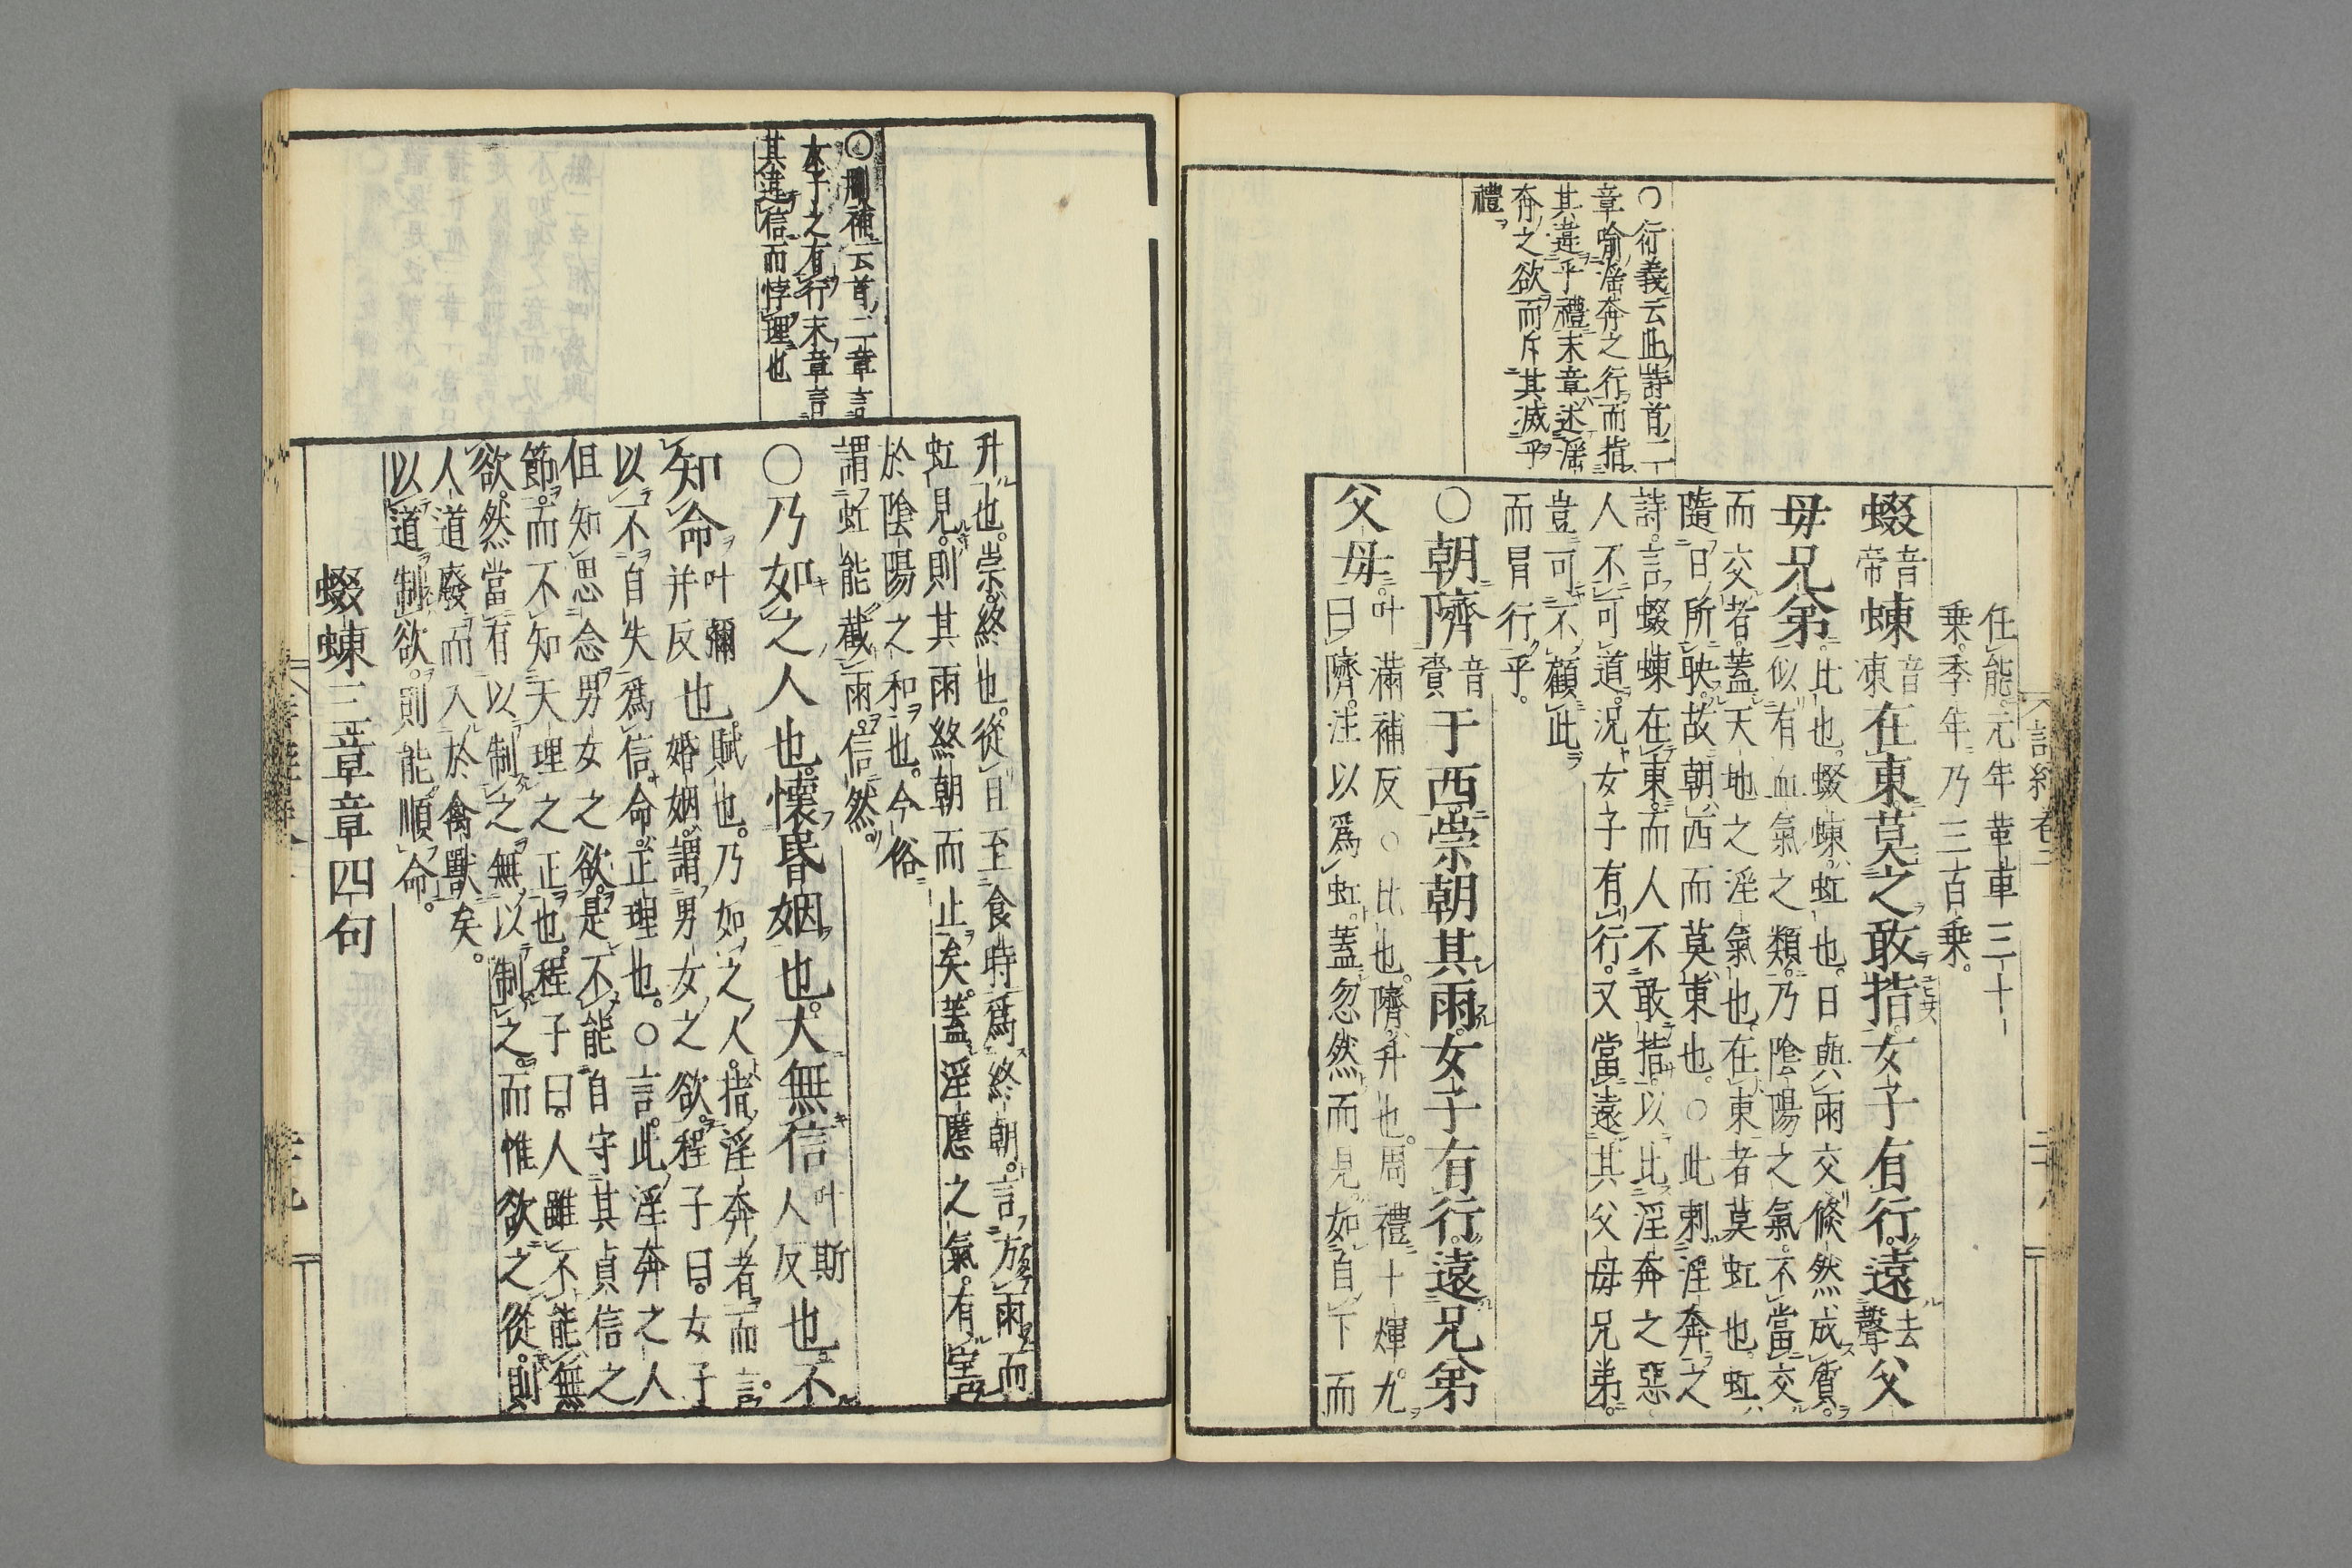 詩經卷二
任能元年革車三十
乗。季年乃三百乗。
蝃音帝蝀音凍在東莫之敢指女子有行。遠去聲父
母兄弟比也。蝃蝀虹也。日與雨交倐然成質。
似有血氣之類。乃陰陽之氣。不當交
而交者。蓋天地之淫氣也在東者莫虹也。虹
隨日所映。故朝西而莫東也。○此刺淫奔之
詩。言蝃蝀在東。而人不敢指。以比淫奔之惡
人不可道。況女子有行。又當遠其父母兄弟。
豈可不顧此
而冐行乎。
○朝隮音賫于西崇朝其雨女子有行。遠兄弟
父母叶滿補反○比也。隮升也。周禮十煇。九
曰隮。注以爲虹。蓋忽然而見如自下而
○衍義云此詩首二
章喩淫奔之行而指
其違乎禮末章述淫
奔之欲而斥其滅乎
禮
升也。崇終也。從旦至食時爲終朝。言方雨而
虹見。則其雨終朝而止矣。蓋淫慝之氣。有害
於陰陽之和也。今俗
謂虹能截雨。信然。
○乃如之人也。懷昏姻也。大無信叶斯人反也不
知命叶彌并反也。賦也。乃如之人。指淫奔者而言。
婚姻。謂男女之欲。程子曰。女子
以不自失爲信。命。正理也。○言。此淫奔之人
但知思念男女之欲。是不能自守其貞信之
節。而不知天理之正也。程子曰。人雖不能無
欲。然當有以制之。無以制之。而惟欲之從。則
人道廢而入於禽獸矣。
以道制欲。則能順命。
蝃蝀三章章四句
○刪補云首二章言
女子之有行末章言
其違信而悖理也